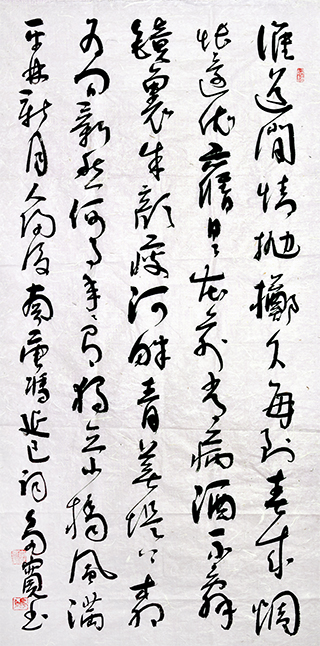 誰道閒情拋擲久每到春來惆
悵還依舊日日花前常病酒不辭
鏡裏朱顏瘦河畔青蕪堤上柳
為問新愁何事年年有獨立小橋風滿
平林新月人歸後南唐馮延巳詞 書